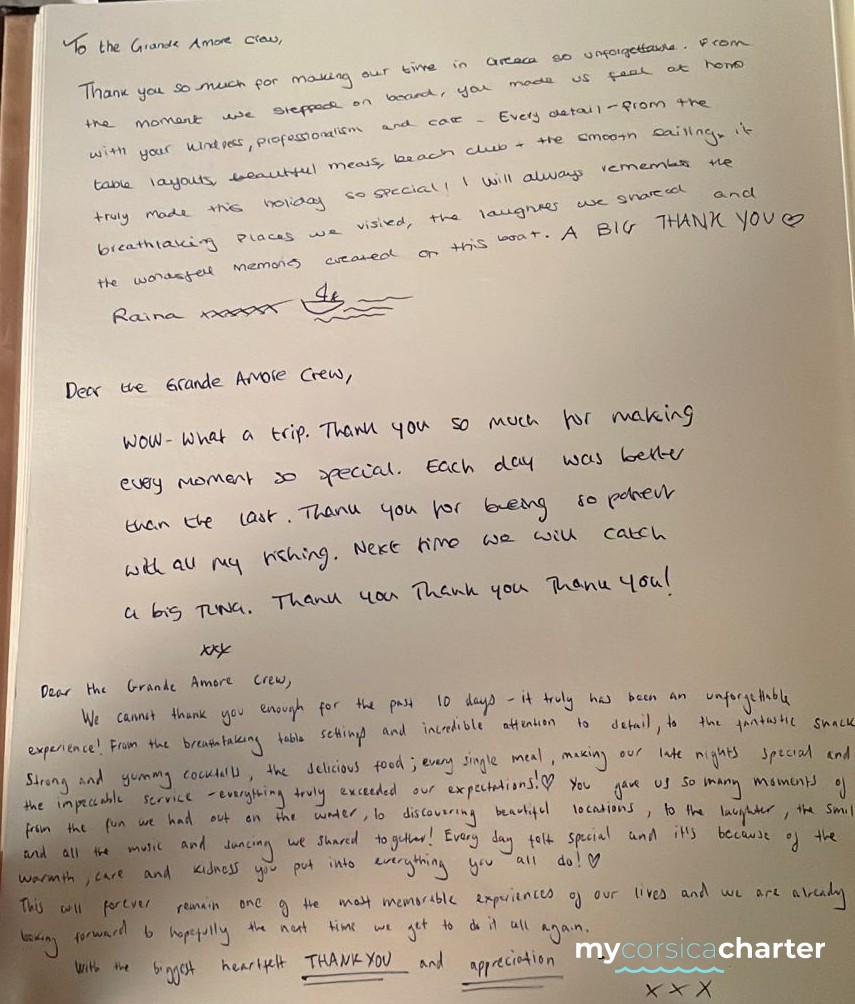 To the Grande Amore crew,
Thank you so much for making our time in Greece so unforgettable. From
the moment we stepped on board, you made us feel at home
with your kindness, professionalism and care - Every detail - from the
table layouts, beautiful meals, beach club + the smooth sailing, it
truly made this holiday so special! I will always remember the
breathtaking places we visited, the laughter we shared and
the wonderfull memories created on this boat. A BIG THANK YOU ♡
Raina xxxxxx
Dear the Grande Amore Crew,
WOW - what a trip. Thank you so much for making
every moment so special. Each day was better
than the last. Thank you for being so patient
with all my fishing. Next time we will catch
a big TUNA. Thank you Thank you Thank you!
xxx
Dear the Grande Amore Crew,
We cannot thank you enough for the past 10 days - it truly has been an unforgettable
experience! From the breathtaking table settings and incredible attention to detail, to the fantastic snack
strong and yummy cocktails, the delicious food; every single meal, making our late nights special and
the impeccable service - everything truly exceeded our expectations!♡ You gave us so many moments of
from the fun we had out on the water, to discovering beautiful locations, to the laughter, the smil
and all the music and dancing we shared together! Every day felt special and it's because of the
warmth, care and kidness you put into everything you all do!♡
This will forever remain one of the most memorable experiences of our lives and we are already
looking forward to hopefully the next time we get to do it all again.
With the biggest heartfelt THANK YOU and appreciation
x x x
mycorsicacharter